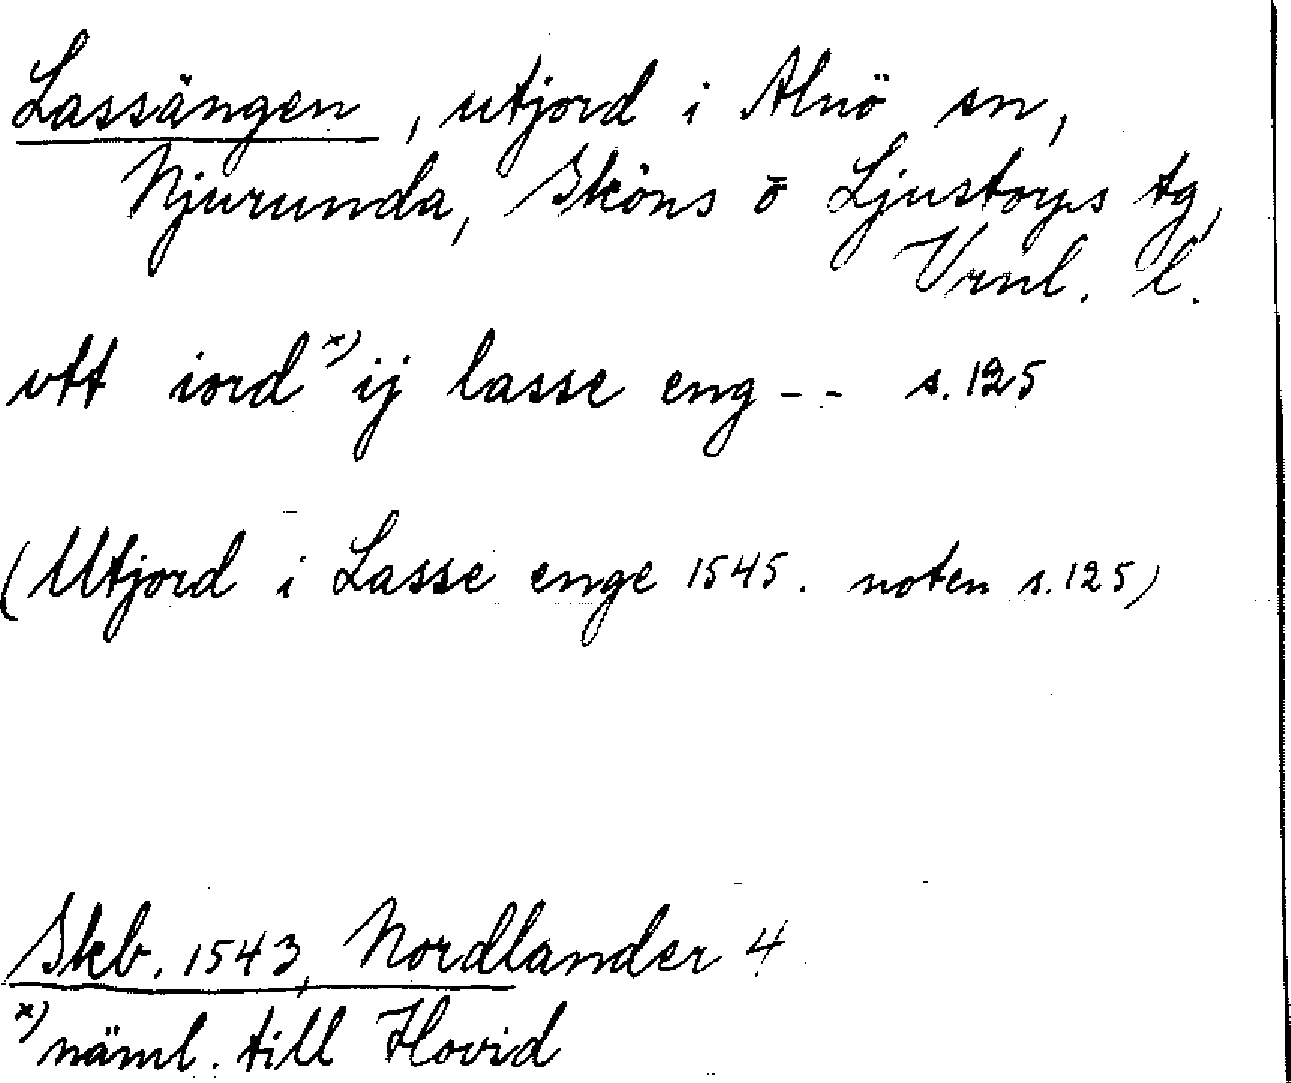 Lassängen, utjord i Alnö sn,
Njurunda, Sköns o Ljustorps tg,
Vrnl. l.
vtt iord x) ij lasse eng -- s. 125
(Utjord i Lasse enge 1545. noten s. 125)
Skb. 1543, Nordlander 4
x) näml. till Hovid